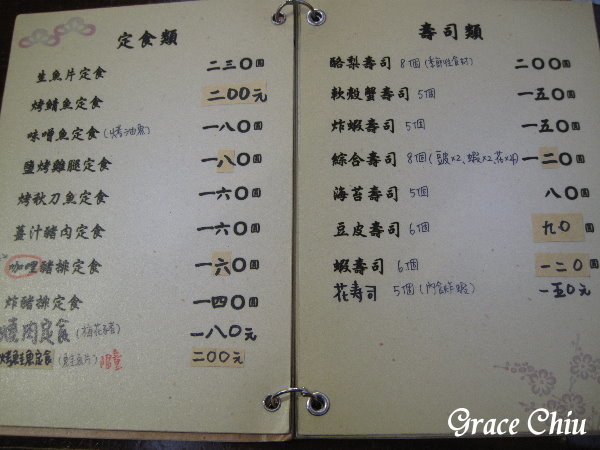 定食類
生魚片定食 二三〇圓
烤鯖魚定食 二00元
味噌魚定食(烤油魚) 一八〇圓
鹽烤雞腿定食 一八〇圓
烤秋刀魚定食 一六〇圓
薑汁豬肉定食 一六〇圓
咖哩豬排定食 一六〇圓
炸豬排定食 一四〇圓
燒肉定食(梅花豬) 一八〇元
烤鮭魚定食(鮭魚片)限量 二00元
壽司類
酪梨壽司 8個(季節性食材) 二〇〇圓
軟殼蟹壽司 5個 一五〇圓
炸蝦壽司 5個 一五〇圓
綜合壽司 8個(豆皮x2、蝦x2、花x4) 一二〇圓
海苔壽司 5個 八〇圓
豆皮壽司 6個 九〇圓
蝦壽司 6個 一二〇圓
花壽司 5個(內含炸蝦) 一五〇元
Grace Chiu